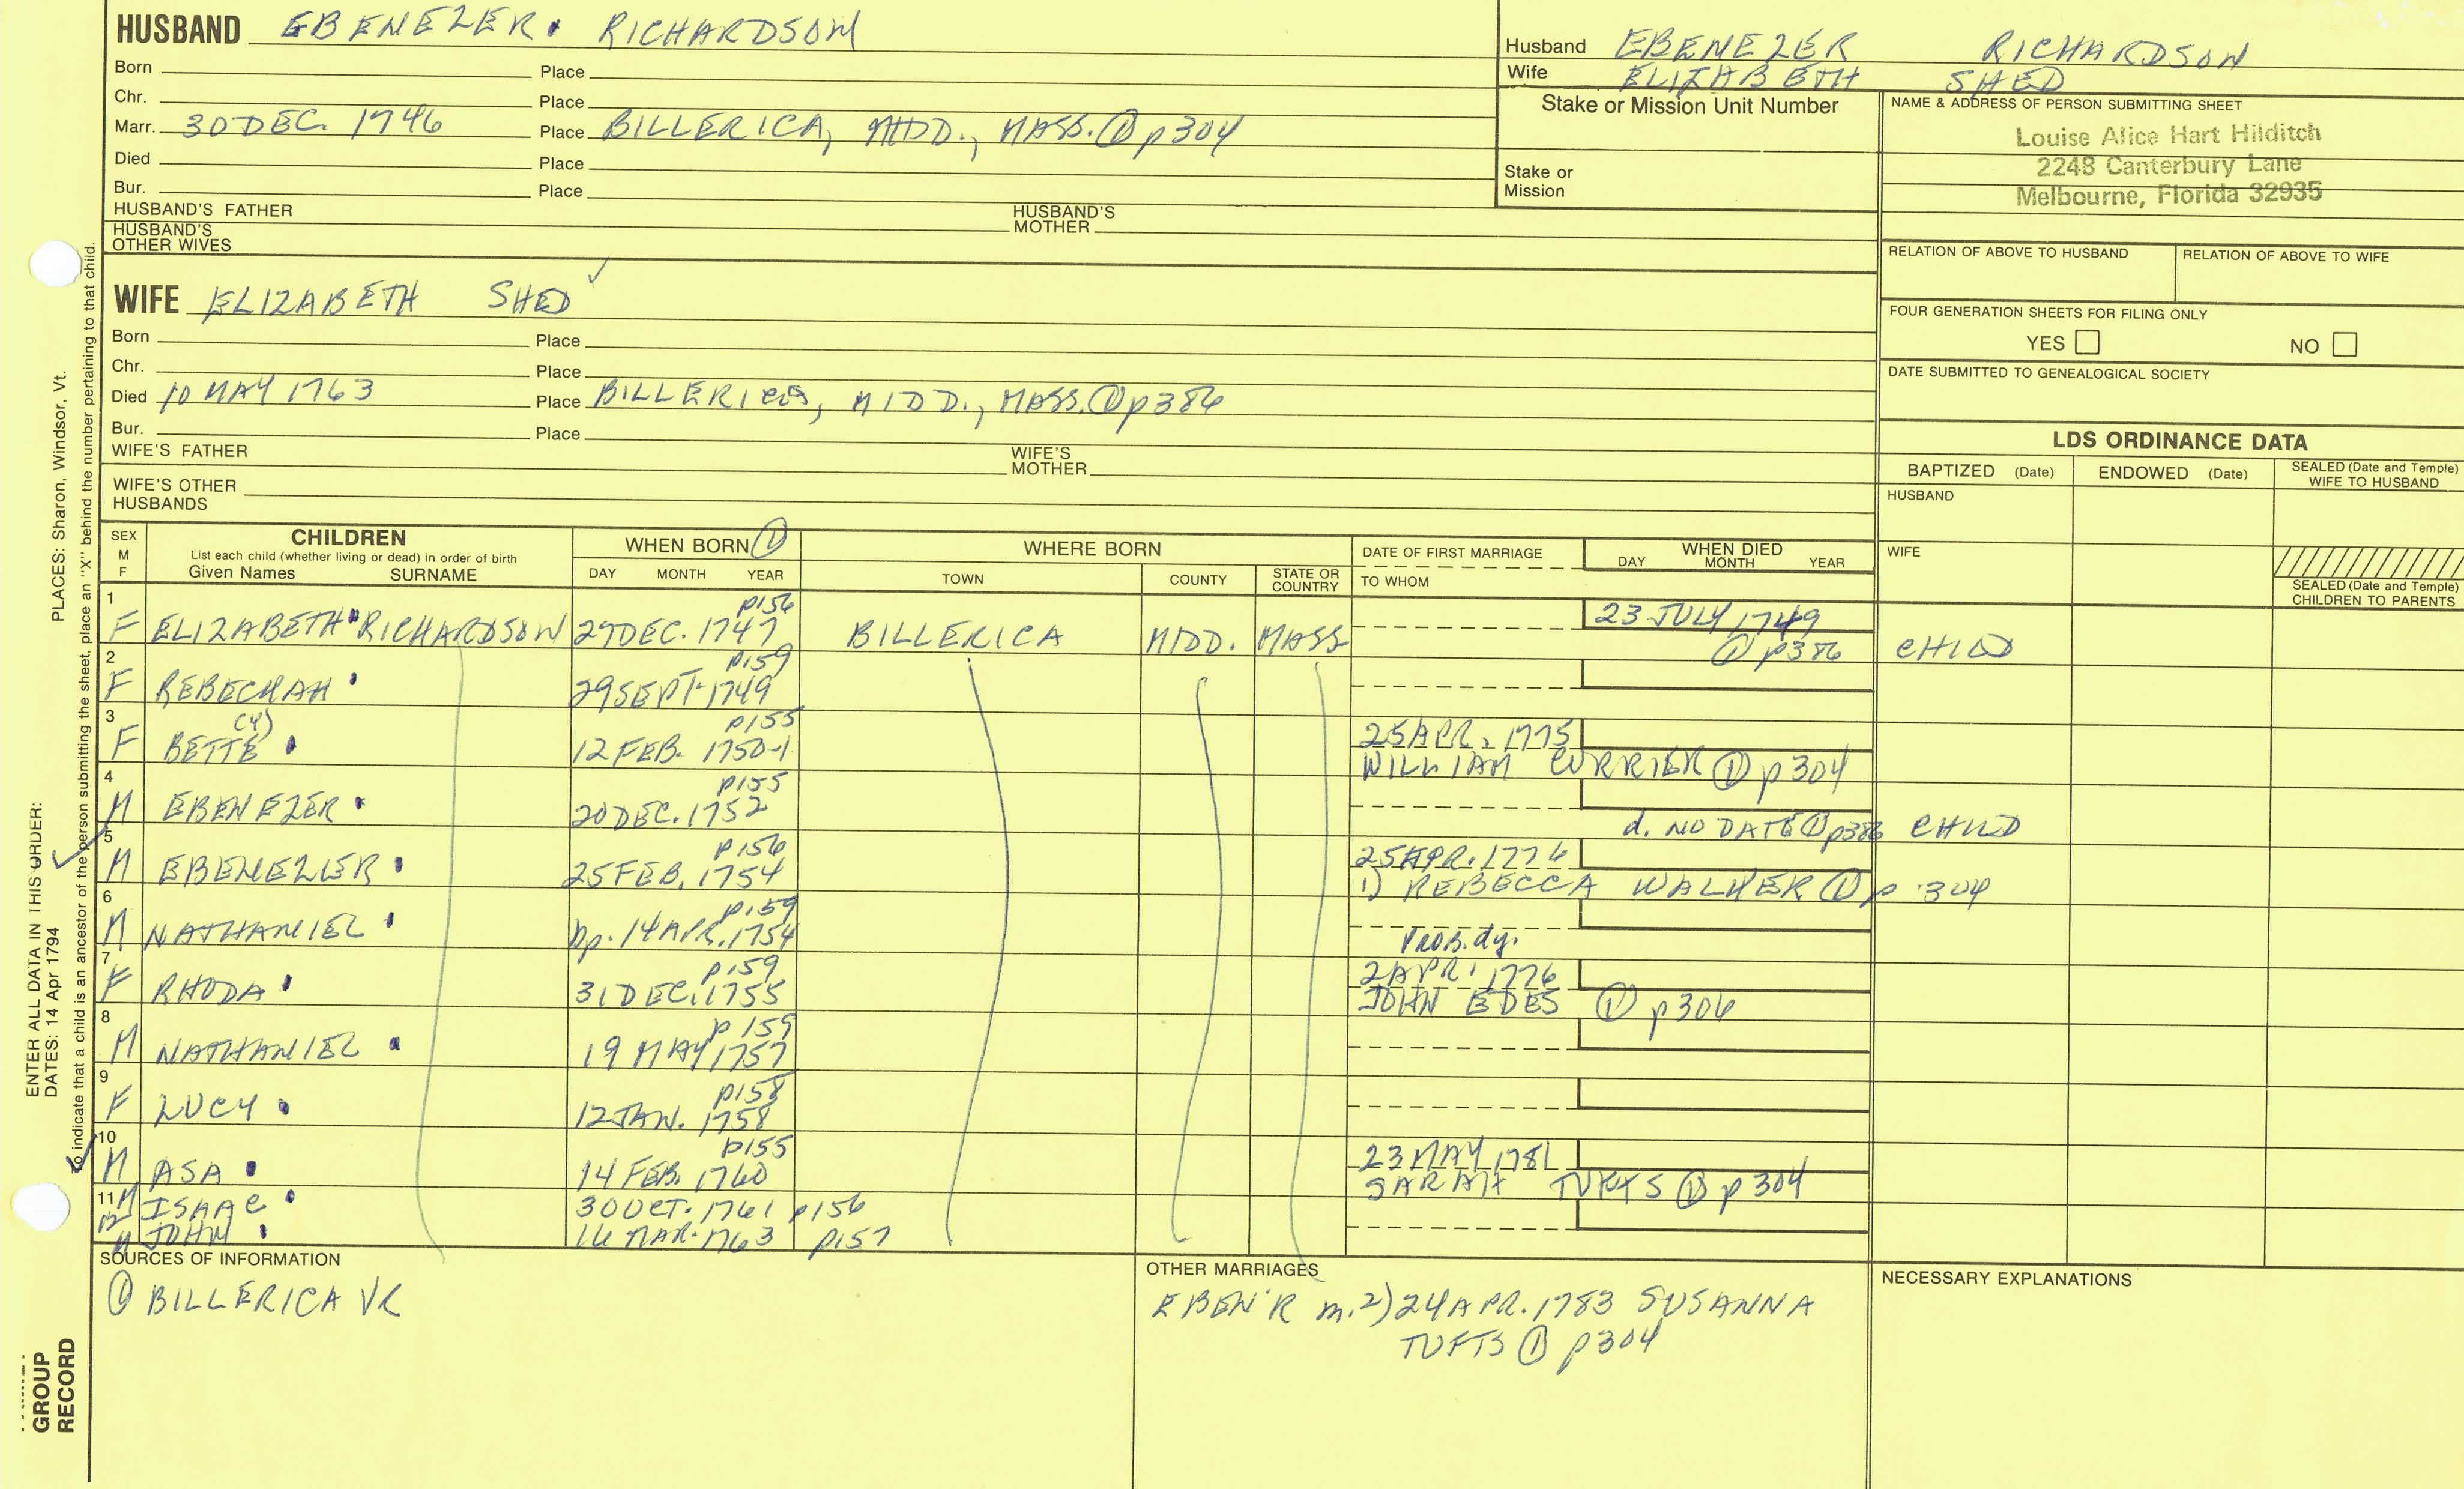 HUSBAND EBENEZER RICHARDSON
Born Place
Chr. Place
Marr. 30 DEC. 1746 Place BILLERICA, MIDD., MASS. ① p304
Died Place
Bur. Place
HUSBAND'S FATHER HUSBAND'S MOTHER
HUSBAND'S OTHER WIVES
Husband EBENEZER RICHARDSON
Wife ELIZABETH SHED
Stake or Mission Unit Number
Stake or Mission
NAME & ADDRESS OF PERSON SUBMITTING SHEET
Louise Alice Hart Hilditch
2248 Canterbury Lane
Melbourne, Florida 32935
RELATION OF ABOVE TO HUSBAND RELATION OF ABOVE TO WIFE
FOUR GENERATION SHEETS FOR FILING ONLY
YES NO
DATE SUBMITTED TO GENEALOGICAL SOCIETY
WIFE ELIZABETH SHED ✓
Born Place
Chr. Place
Died 10 MAY 1763 Place BILLERICA, MIDD., MASS. ① p386
Bur. Place
WIFE'S FATHER WIFE'S MOTHER
WIFE'S OTHER HUSBANDS
LDS ORDINANCE DATA
BAPTIZED (Date) ENDOWED (Date) SEALED (Date and Temple) WIFE TO HUSBAND
HUSBAND
WIFE
SEALED (Date and Temple) CHILDREN TO PARENTS
SEX M F
CHILDREN
List each child (whether living or dead) in order of birth
Given Names SURNAME
WHEN BORN ①
DAY MONTH YEAR
WHERE BORN
TOWN COUNTY STATE OR COUNTRY
DATE OF FIRST MARRIAGE
TO WHOM
WHEN DIED
DAY MONTH YEAR
1 p156 23 JULY 1749
F ELIZABETH RICHARDSON 27 DEC. 1747 BILLERICA MIDD. MASS ① p386 CHILD
2 p159
F REBECKAH 29 SEPT. 1749
3 (Y) p155 25 APR. 1775
F BETTE 12 FEB. 1750-1 WILLIAM CURRIER ① p304
4 p155
M EBENEZER 20 DEC. 1752 d. NO DATE ① p386 CHILD
5 p156 25 APR. 1776
M EBENEZER 25 FEB. 1754 1) REBECCA WALKER ① p 304
6 p159
M NATHANIEL bp. 14 APR. 1754 PROB. dy.
7 p159 2 APR. 1776
F RHODA 31 DEC. 1755 JOHN EDES ① p306
8 p159
M NATHANIEL 19 MAY 1757
9 p158
F LUCY 12 JAN. 1758
10 p155 23 MAY 1781
M ASA 14 FEB. 1760 SARAH TUFTS ① p304
11 M ISAAC 30 OCT. 1761 p156
12 M JOHN 16 MAR. 1763 p157
SOURCES OF INFORMATION
① BILLERICA VR
OTHER MARRIAGES
EBEN'R m. 2) 24 APR. 1783 SUSANNA
TUFTS ① p304
NECESSARY EXPLANATIONS
ENTER ALL DATA IN THIS ORDER:
DATES: 14 Apr 1794 PLACES: Sharon, Windsor, Vt.
To indicate that a child is an ancestor of the person submitting the sheet, place an "X" behind the number pertaining to that child.
GROUP
RECORD